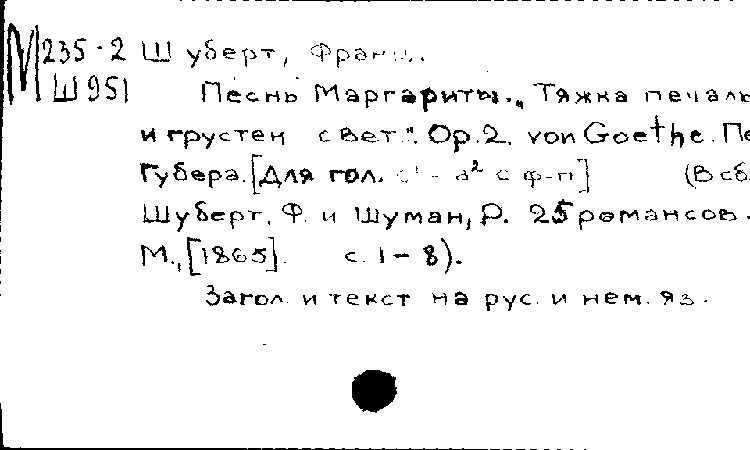 М 235-2 Шуберт, Франц.
Ш951 Песнь Маргариты. „Тяжка печаль
и грустен свет". Op.2. von Goethe. Пе
Губера. [Для гол. с¹ - а² с ф-п] (В сб.
Шуберт, Ф. и Шуман, Р. 25 романсов.
М., [1865]. с. 1-8).
Загол. и текст на рус. и нем. яз.